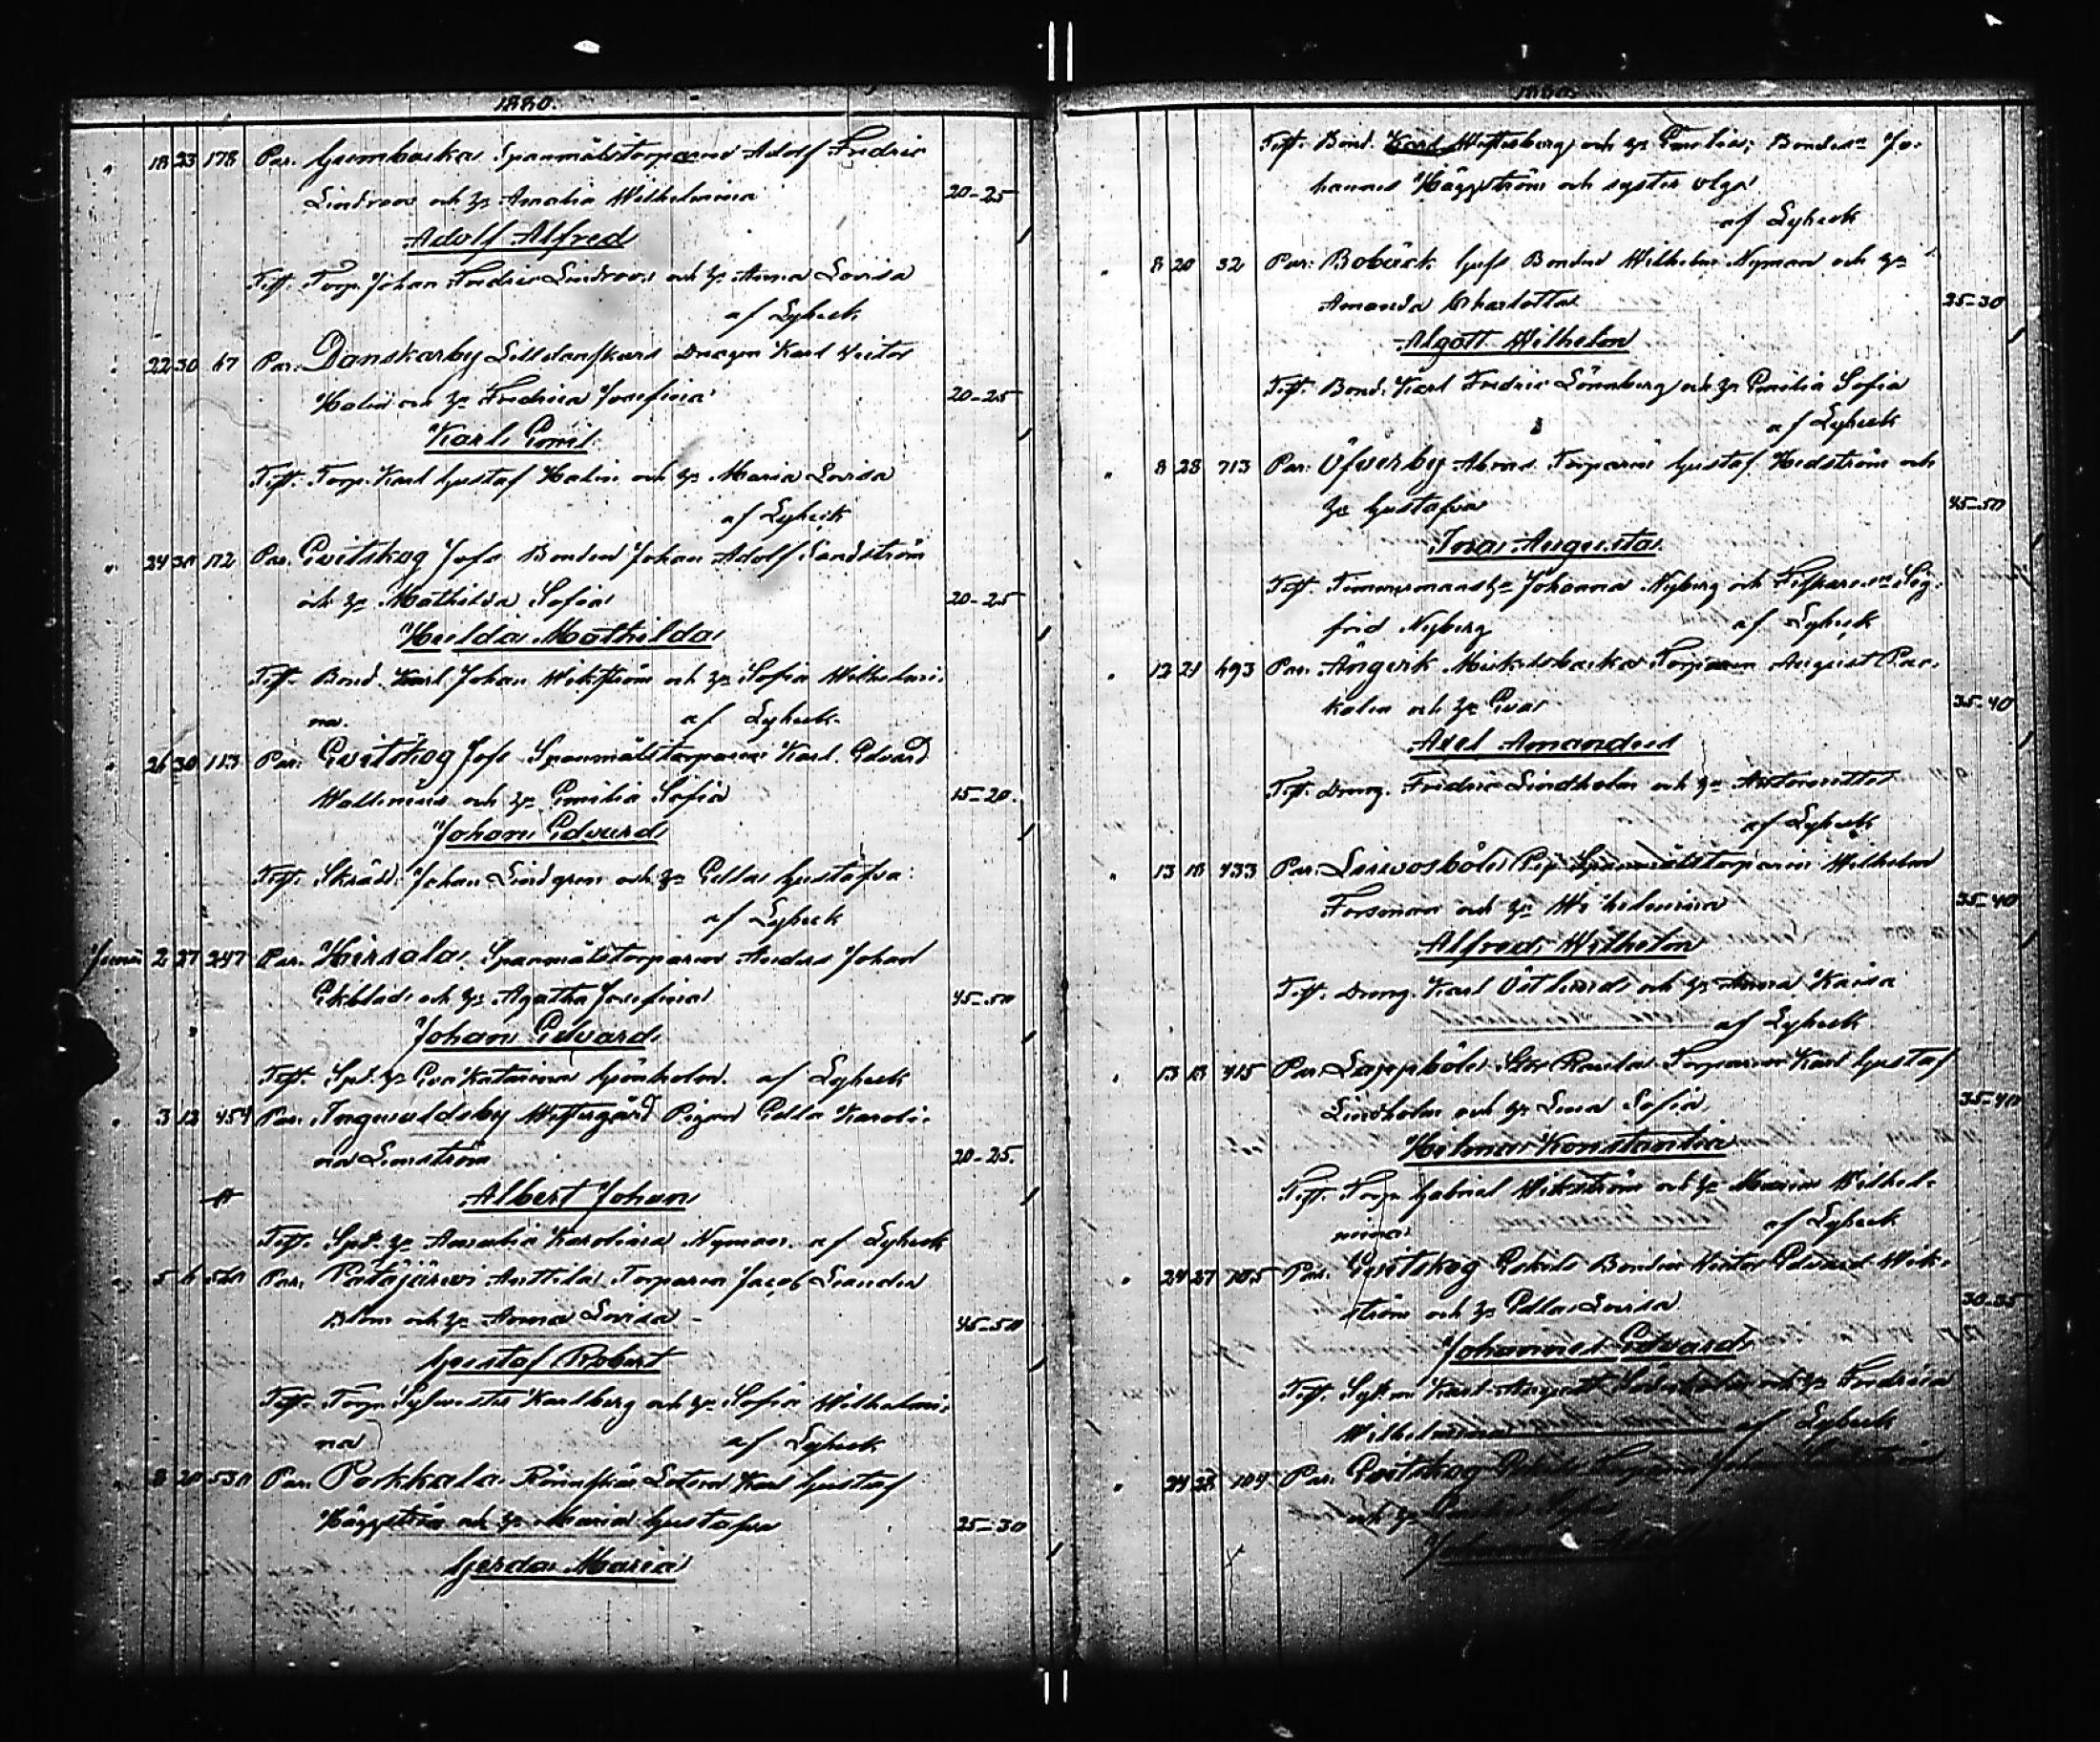 1880.
" 18 23 178 Par. Gumbacka Spanmålstorparen Adolf Fredric
Lindroos och h: Amalia Wilhelmina 20-25
Adolf Alfred
Test. Torp. Johan Fredric Lindroos och h: Anna Lovisa
af Lybeck
" 22 30 67 Par. Danskarby Lilldanskars Drägen Karl Victor
Malin och h: Fredrica Josefina 20-25
Karl Emil
Test. Torp. Karl Gustaf Malin och h: Maria Lovisa
af Lybeck
" 24 30 112 Par. Evitskog Jofs Bonden Johan Adolf Sandström
och h: Mathilda Sofia 20-25
Hulda Mathilda
Test. Bond. Karl Johan Wikström och h: Sofia Wilhelmi-
na. af Lybeck
" 26 30 113 Par. Evitskog Jofs Spanmålstorparen Karl Edvard
Wallenius och h: Emilia Sofia 15-20.
Johan Edvard
Test. Skräd. Johan Lindgren och h: Edla Gustafva
af Lybeck
Juni 2 27 247 Par. Hirsala Spanmålstorparen Anders Johan
Ekblad och h: Agatha Josefina 45-50
Johan Edvard
Test. Spt. h: Eva Katarina Grönholm. af Lybeck
" 3 12 454 Par. Ingvaldsby Westergård Pigan Edla Karoli-
na Lindström 20-25.
Albert Johan
Test. Spt. h: Amalia Karolina Nyman. af Lybeck
" 5 6 560 Par. Patajärvi Anttila Torparen Jacob Leander
Blom och h: Anna Lovisa 45-50
Gustaf Robert
Test. Torp. Sylvester Karlberg och h: Sofia Wilhelmi-
na af Lybeck
" 8 20 530 Par. Porkkala Rönnskär Lotsen Karl Gustaf
Häggström och h: Maria Gustafva 25-30
Gerda Maria
1880.
Test. Bond. Karl Westerberg och h: Emilia; Bonden Jo-
hannes Häggström och syster Olga
af Lybeck
" 8 20 32 Par. Bobäck Gufs Bonden Wilhelm Nyman och h:
Amanda Charlotta 25-30
Algott Wilhelm
Test. Bond. Karl Fredric Lönnberg och h: Emilia Sofia
af Lybeck
" 8 28 713 Par. Öfverby Abrams Torparen Gustaf Hedström och
h: Gustafva 45-50
Ina Augusta
Test. Timmermans h: Johanna Nyberg och Sig-
frid Nyberg af Lybeck
" 12 21 493 Par. Ängvik Mickelsbacka Torparen August
och h: Eva 35-40
Axel Amandus
Test. Dreng. Fredric Lindholm och h: Antoinette
af Lybeck
" 13 18 433 Par. Spanmålstorparen Wilhelm
Forsman och h: Wilhelmina 35-40
Alfred Wilhelm
Test. Dreng. Karl Östlund och h: Anna Kaisa
af Lybeck
" 13 13 415 Par. Lappböle Stor Ranta Torparen Karl Gustaf
Lindholm och h: Lina Sofia 35-40
Hilma Konstantia
Test. Torp. Gabriel Wikström och h: Maria Wilhel-
mina af Lybeck
" 24 27 105 Par. Evitskog Eskils Bonden Victor Edvard Wik-
ström och h: Edla Lovisa 30-35
Johannes Edvard
Test. Karl August Söderholm och h: Fredrica
Wilhelmina af Lybeck
" 24 28 104 Par. Evitskog
och h: